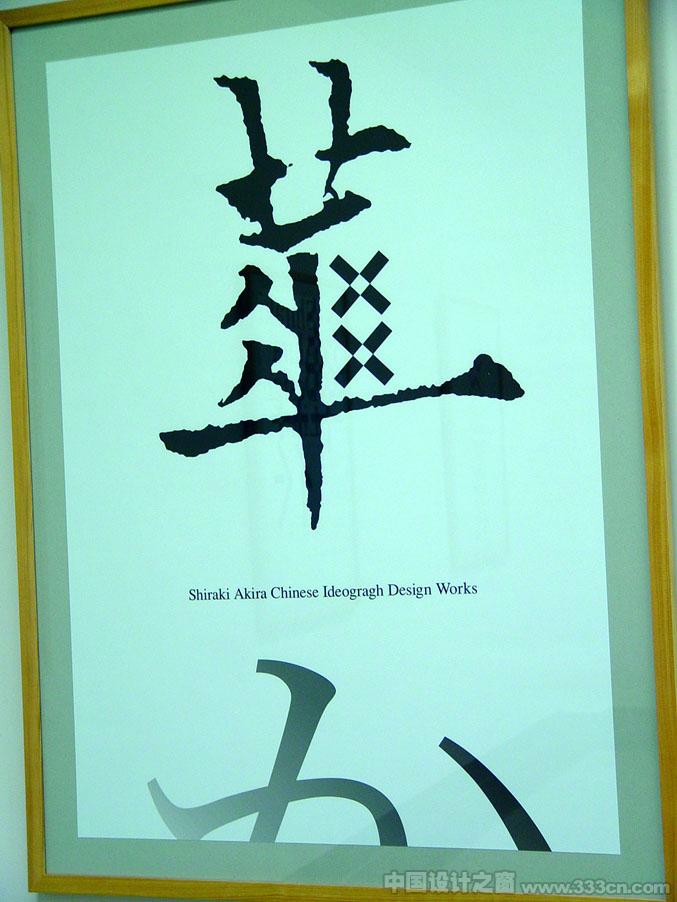 華
Shiraki Akira Chinese Ideogragh Design Works
か
中国设计之窗 www.333cn.com